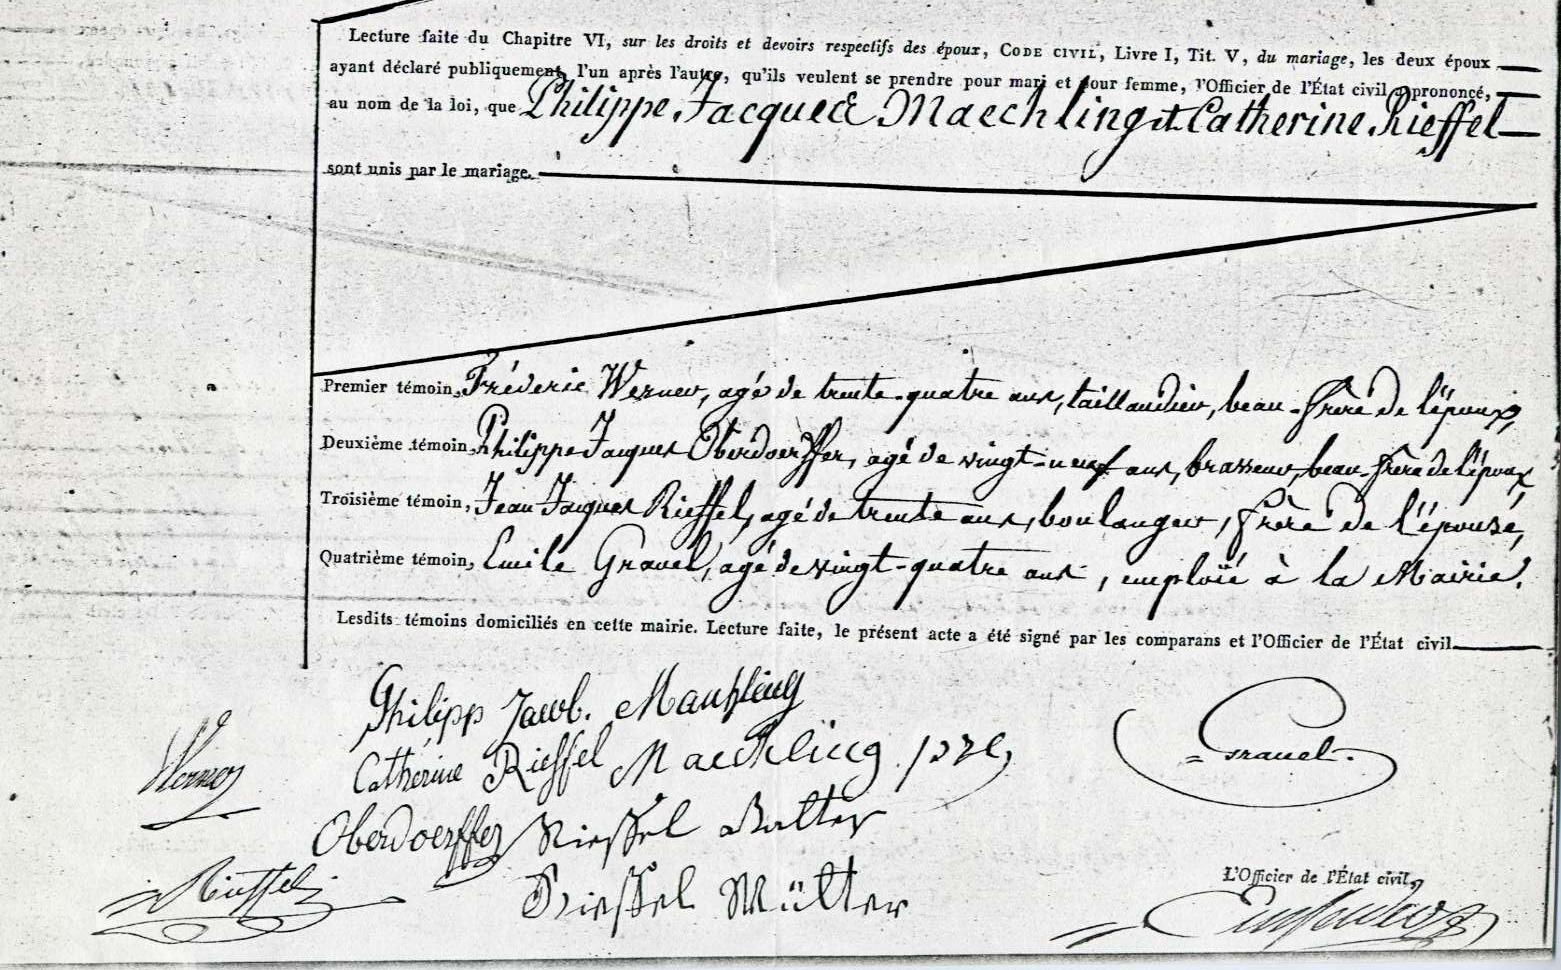 Lecture faite du Chapitre VI, sur les droits et devoirs respectifs des époux, CODE CIVIL, Livre I, Tit. V, du mariage, les deux époux
ayant déclaré publiquement, l'un après l'autre, qu'ils veulent se prendre pour mari et pour femme, l'Officier de l'État civil a prononcé,
au nom de la loi, que Philippe Jacques Maechling et Catherine Rieffel
sont unis par le mariage.
Premier témoin, Fréderic Werner, agé de trente-quatre ans, taillandier, beau-frère de l'époux,
Deuxième témoin, Philippe Jacques Oberdoerffer, agé de vingt-neuf ans, brasseur, beau-frère de l'époux,
Troisième témoin, Jean Jacques Rieffel, agé de trente ans, boulanger, frère de l'épouse,
Quatrième témoin, Emile Gravel, agé de vingt-quatre ans, emploïé à la Mairie.
Lesdits témoins domiciliés en cette mairie. Lecture faite, le présent acte a été signé par les comparans et l'Officier de l'État civil
Philipp Jacob. Maechling
Catherine Rieffel Maechling
Werner
Gravel
Oberdoerffer Rieffel Vatter
Rieffel
Rieffel Mütter
L'Officier de l'État civil,